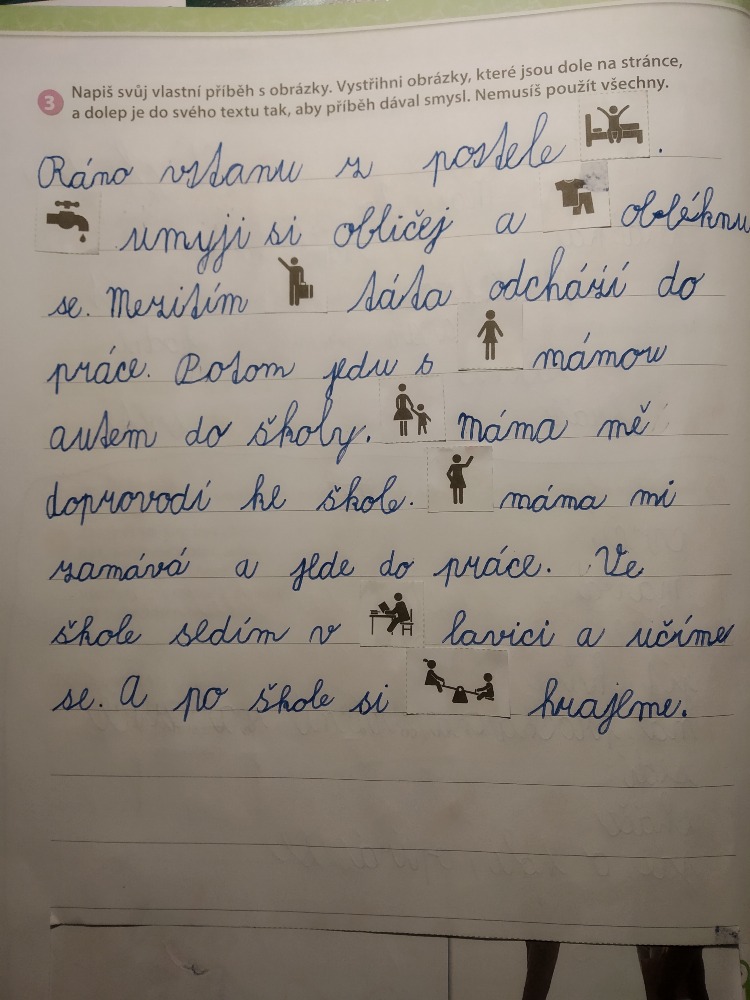 3 Napiš svůj vlastní příběh s obrázky. Vystřihni obrázky, které jsou dole na stránce,
a dolep je do svého textu tak, aby příběh dával smysl. Nemusíš použít všechny.
Ráno vstanu z postele .
umyji si obličej a obléknu
se. Mezitím táta odchází do
práce. Potom jedu s mámou
autem do školy. máma mě
doprovodí ke škole. máma mi
zamává a jede do práce. Ve
škole sedím v lavici a učíme
se. A po škole si hrajeme.